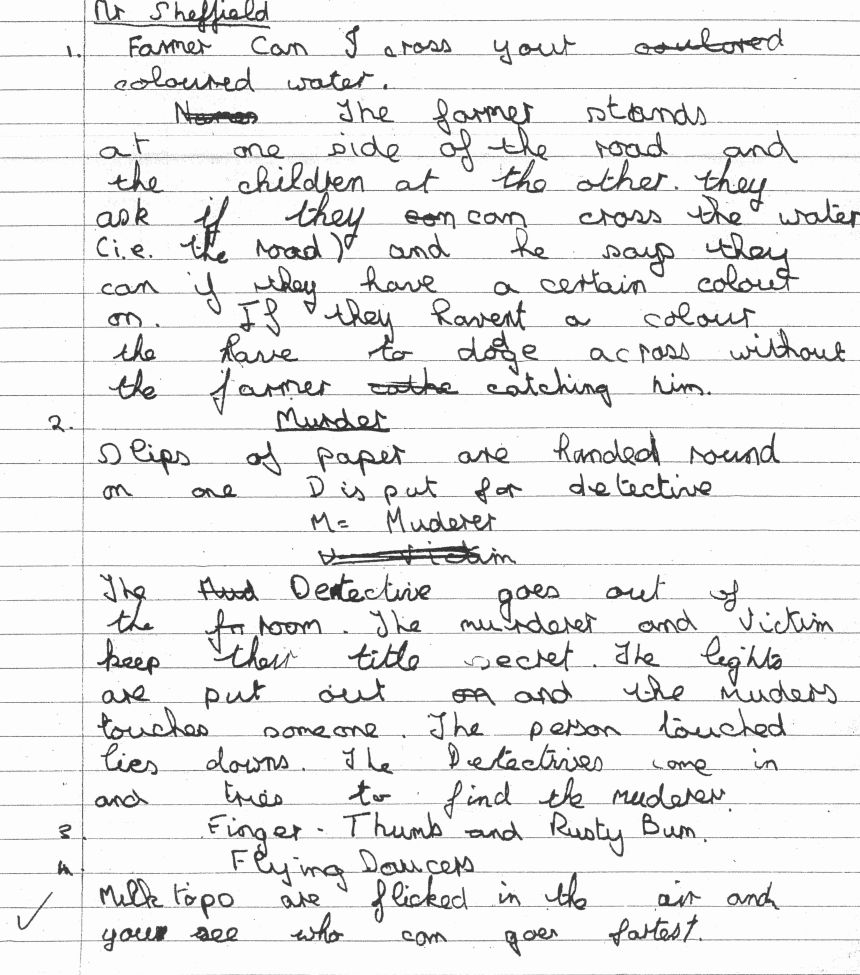 Mr Sheffield
1. Farmer Can I cross your coulored
coloured water.
Names The farmer stands
at one side of the road and
the children at the other. they
ask if they can can cross the water
(i.e. the road) and he says they
can if they have a certain colour
on. If they havent a colour
the have to dodge across without
the farmer cathe catching him.
2. Murder
Slips of paper are handed round
on one D is put for detective
M= Muderer
V Victim
The Detective goes out of
the room. The murderer and Victim
keep their title secret. The lights
are put out and the muders
touches someone. The person touched
lies downs. The Detectives come in
and tries to find the muderer.
3. Finger - Thumb and Rusty Bum.
4. Flying Saucers
Milk tops are flicked in the air and
your see who can goes fartest.